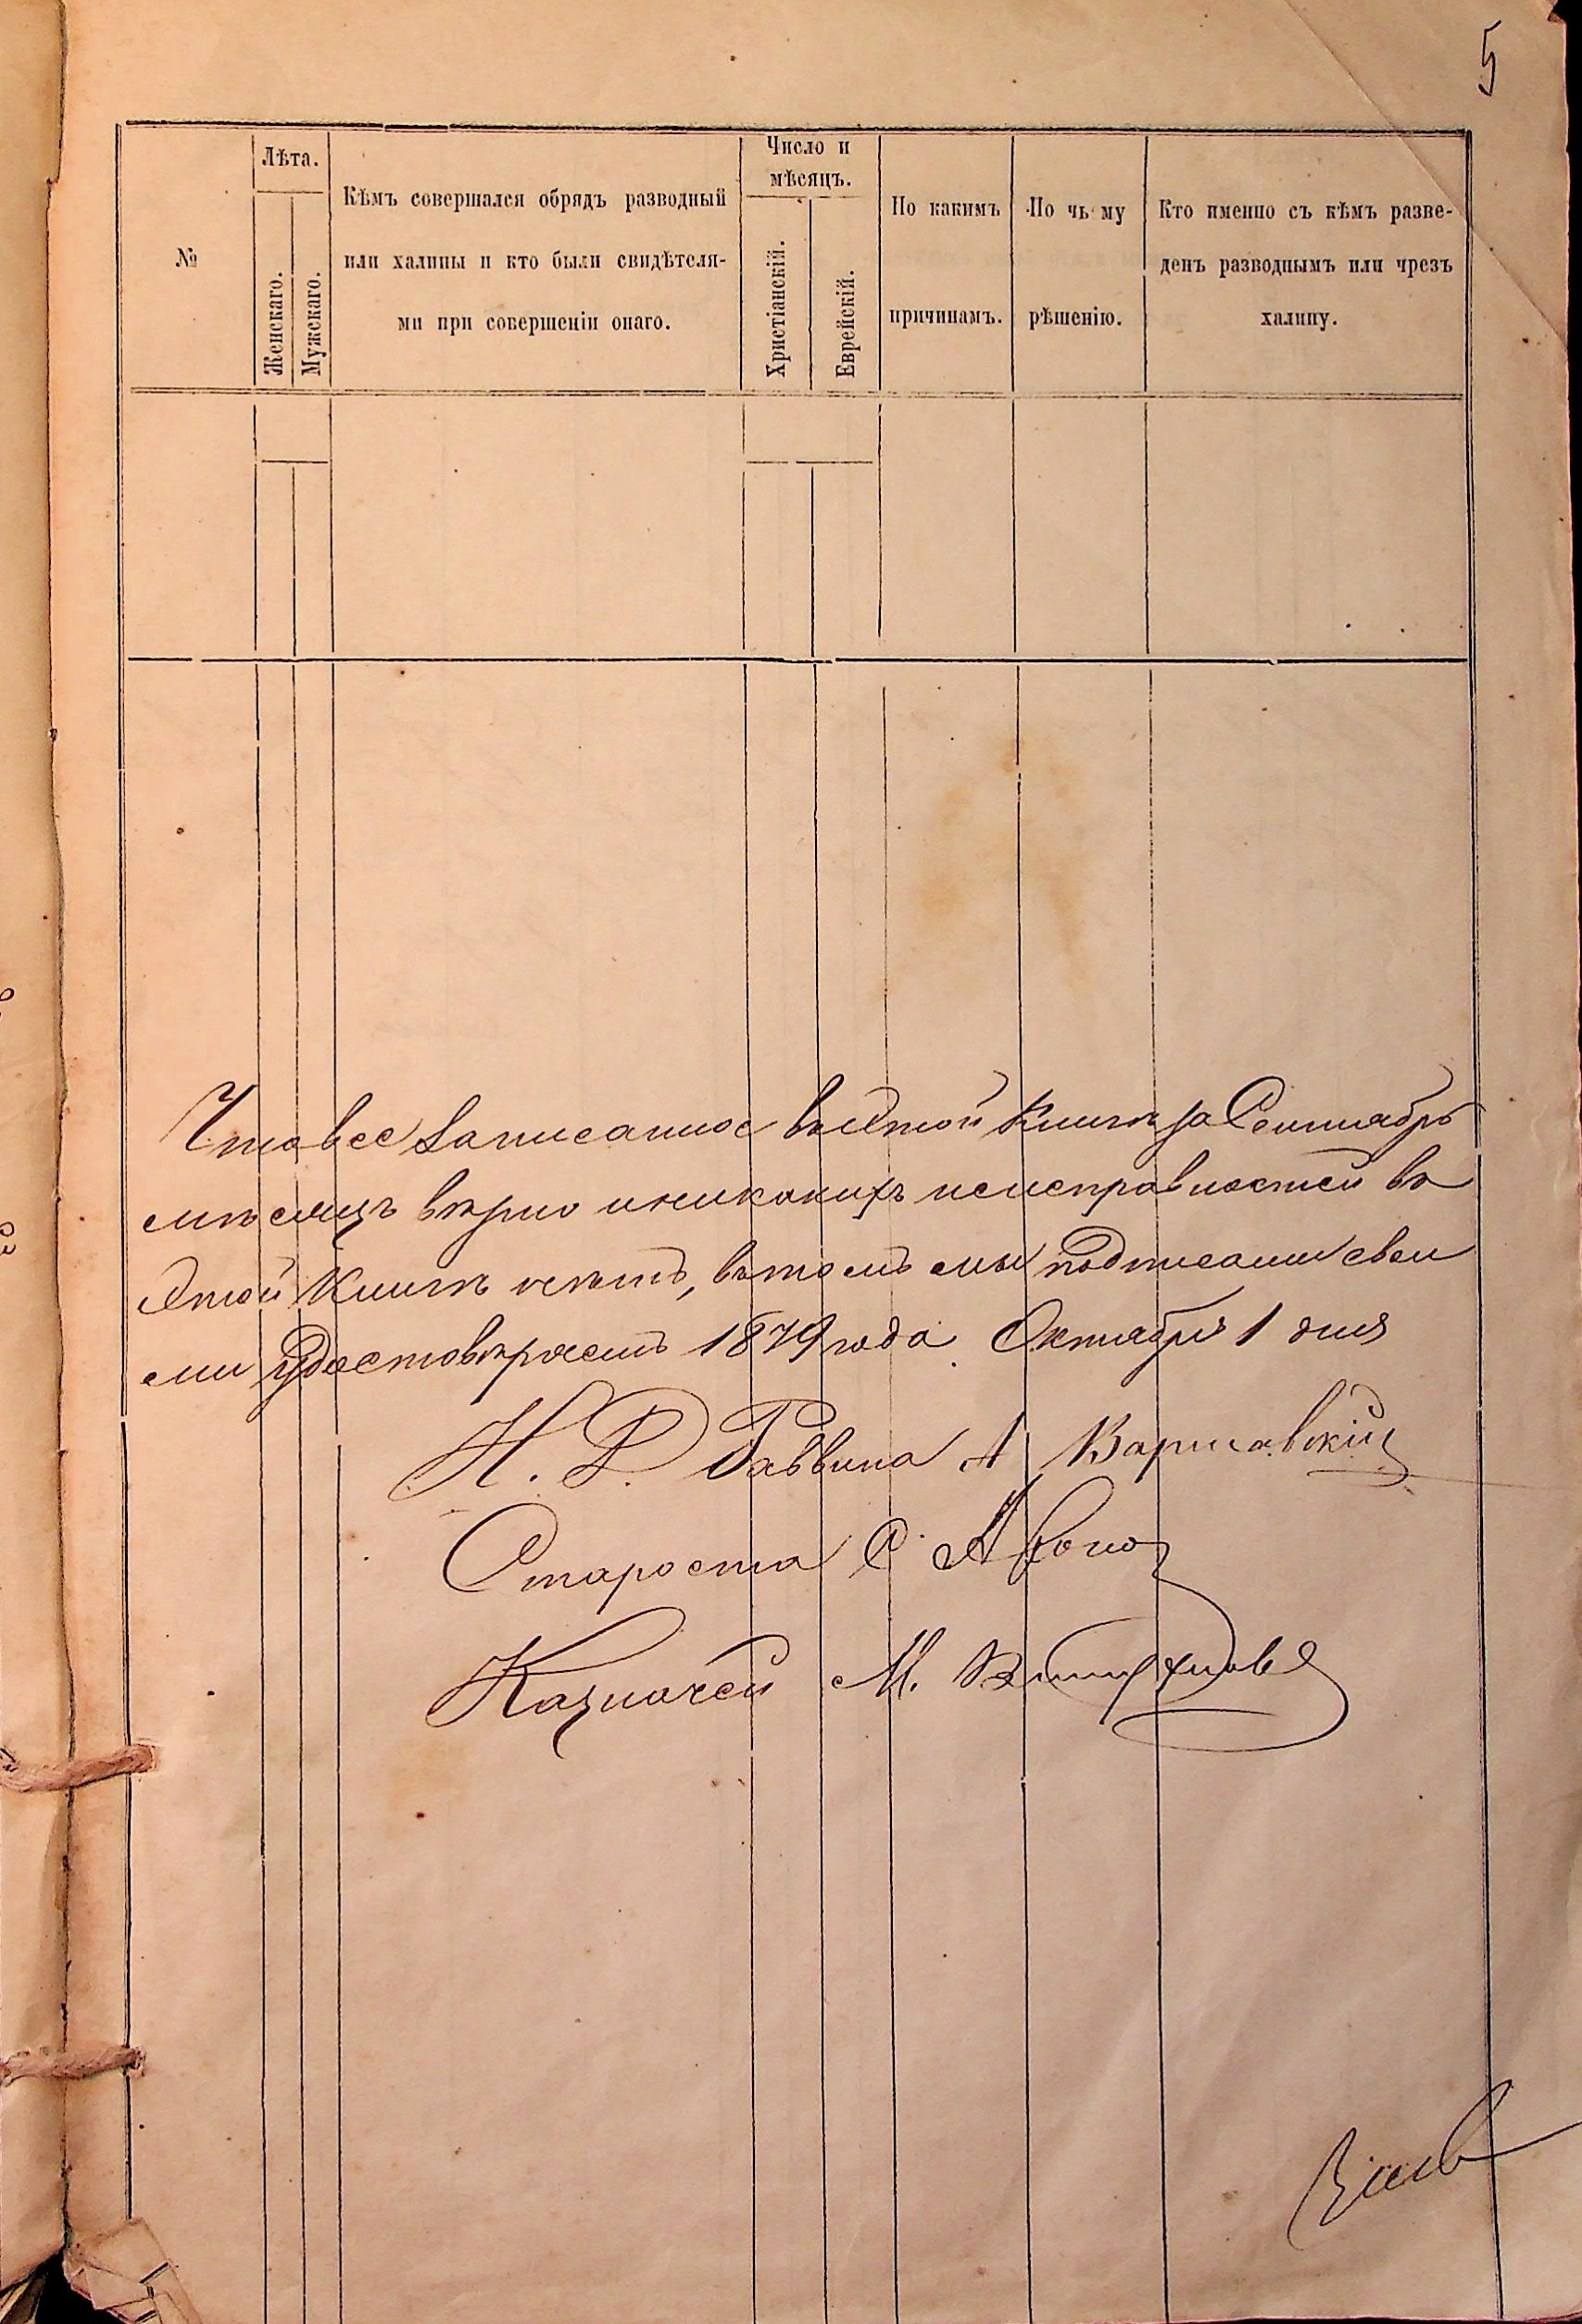 5
№
Лѣта.
Женскаго.
Мужскаго.
Кѣмъ совершался обрядъ разводный
или халицы и кто были свидѣтеля-
ми при совершеніи онаго.
Число и
мѣсяцъ.
Христіанскій.
Еврейскій.
По какимъ
причинамъ.
По чь му
рѣшенію.
Кто именно съ кѣмъ разве-
денъ разводнымъ или чрезъ
халицу.
Что все Записанное въ Этой Книгѣ за Сентябрь
мѣсяцъ вѣрно и никакихъ неисправностей въ
Этой Книгѣ нѣтъ, въ томъ мы подписами свои
ми удостовѣряемъ 1879 года Октября 1 дня
И. Д. Раввина А Варшавскій
Староста С.
Казначей М.